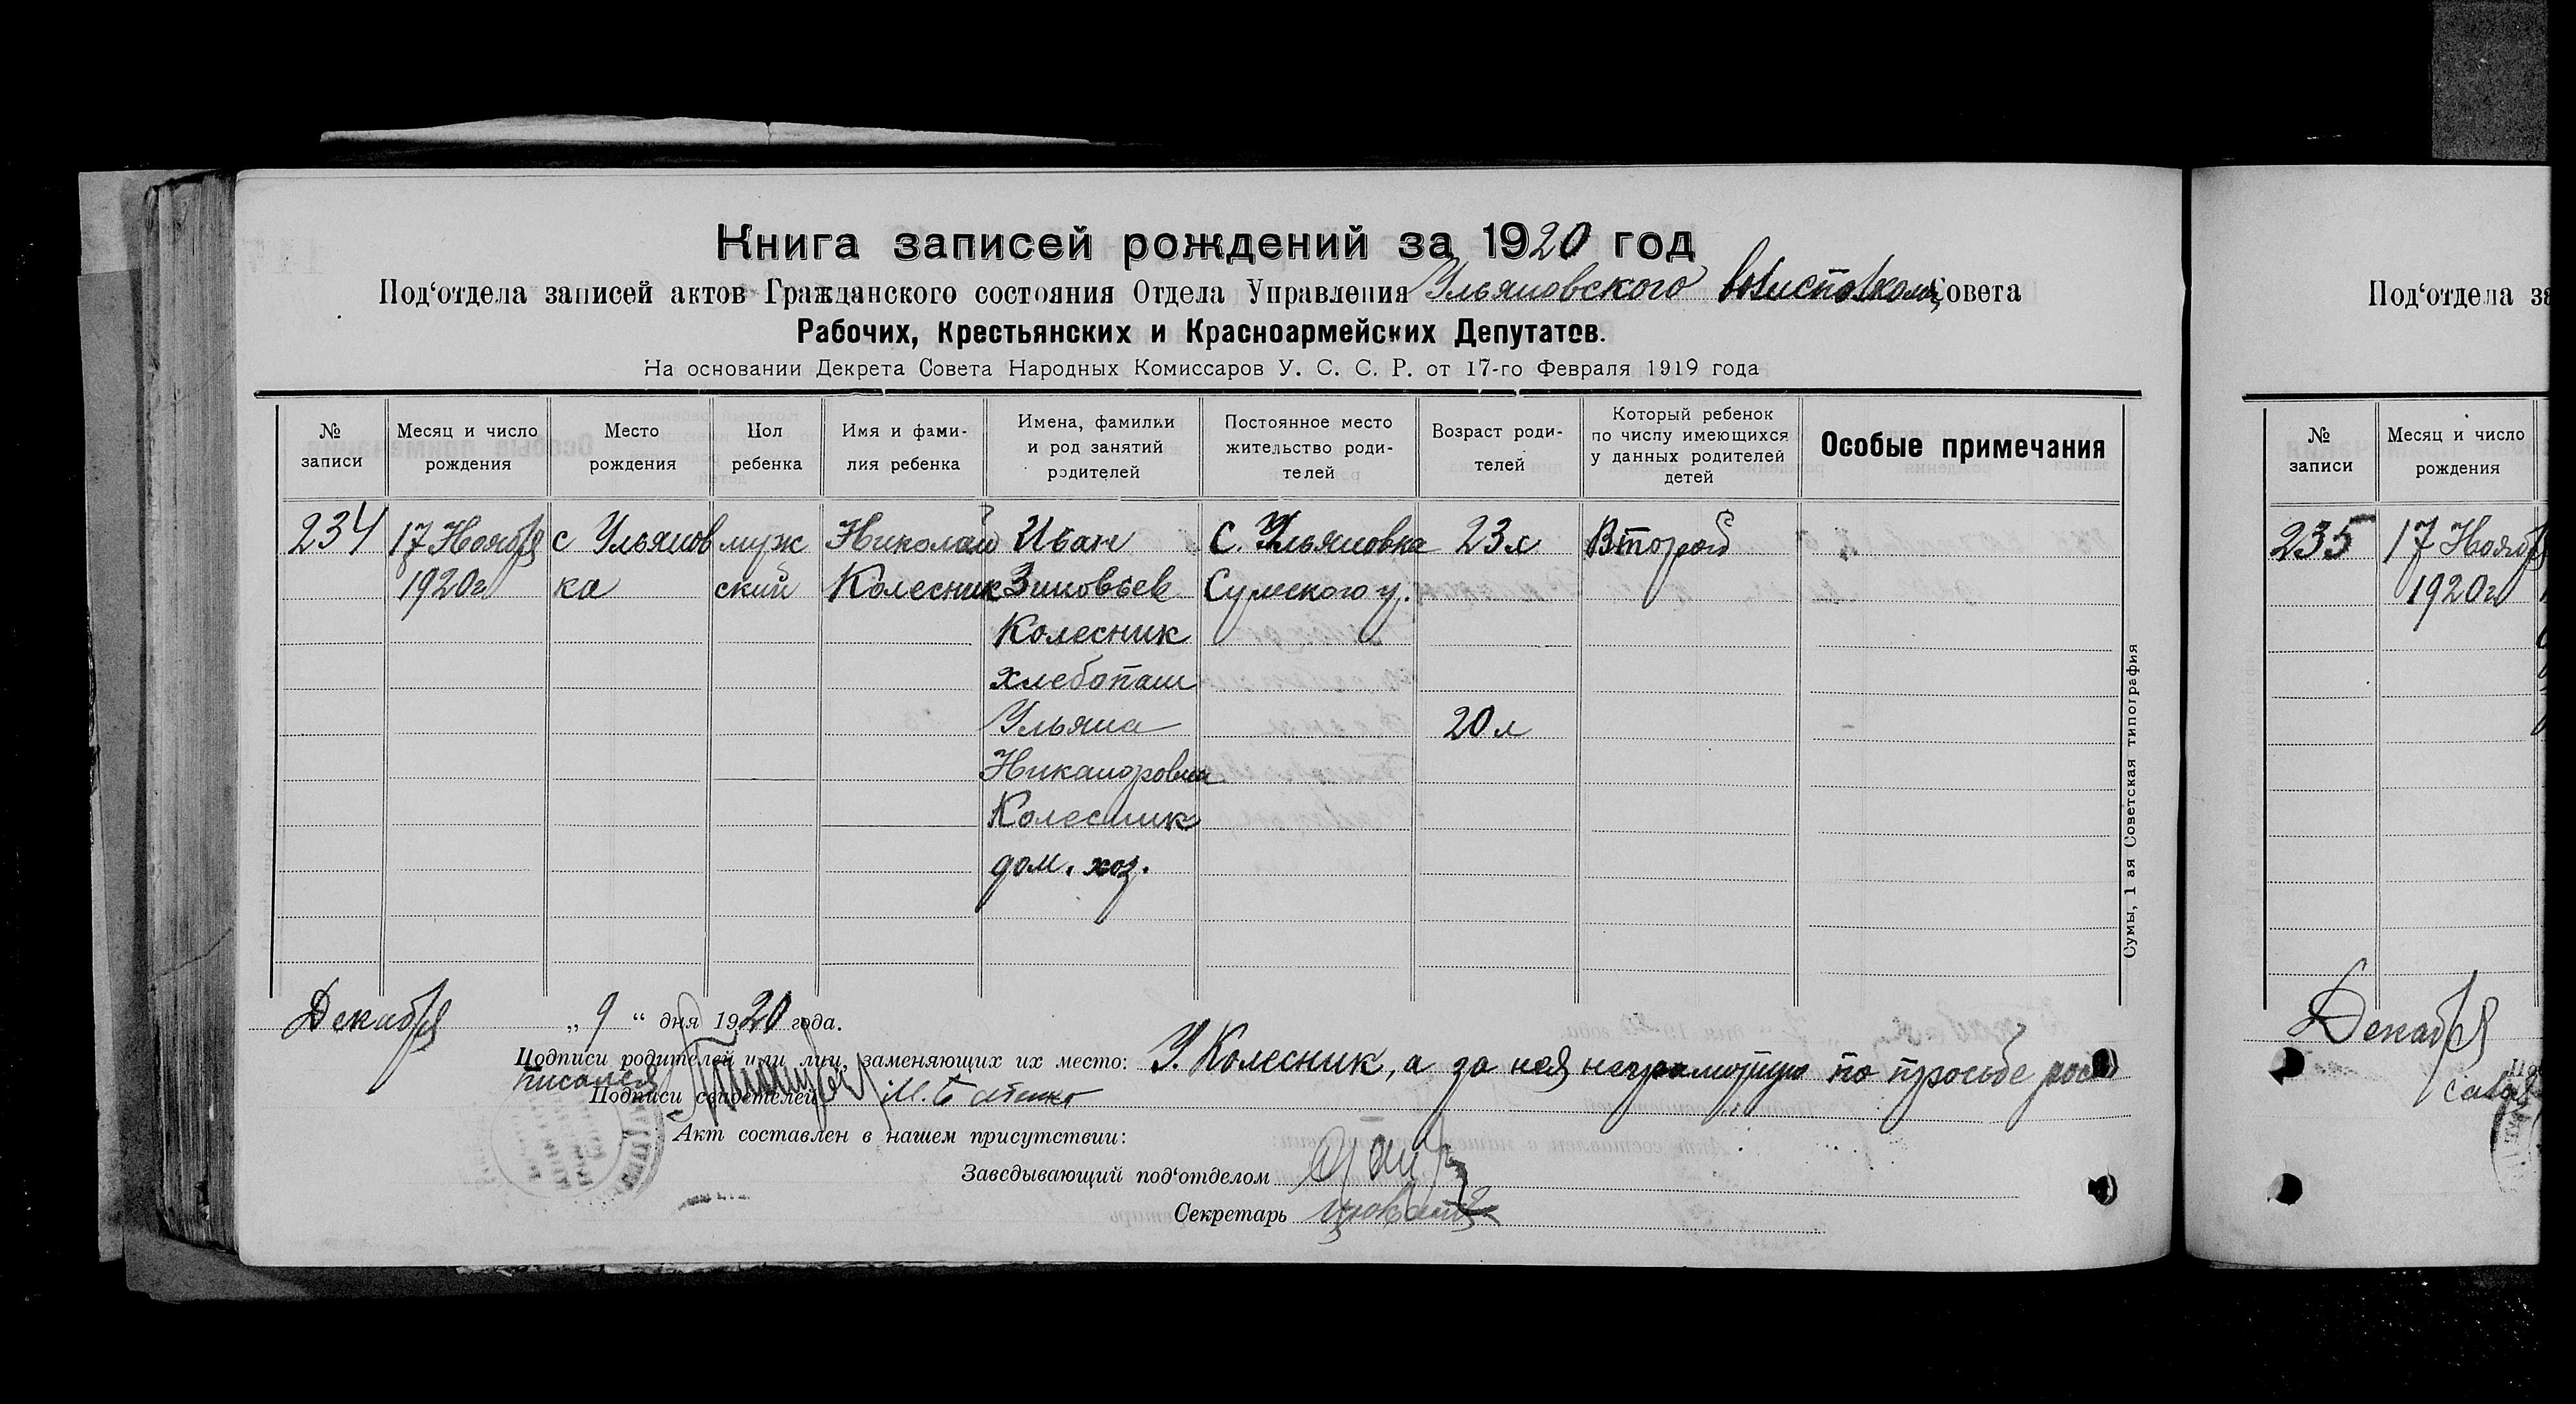 Книга записей рождений за 1920 год
Под‘отдела записей актов Гражданского состояния Отдела Управления Ульяновского Волисполкома Совета
Рабочих, Крестьянских и Красноармейских Депутатов.
На основании Декрета Совета Народных Комиссаров У. С. С. Р. от 17-го Февраля 1919 года
№ записи
Месяц и число рождения
Место рождения
Пол ребенка
Имя и фамилия ребенка
Имена, фамилки и род занятий родителей
Постоянное место жительство родителей
Возраст родителей
Который ребенок по числу имеющихся у данных родителей детей
Особые примечания
234 17 Ноября с Ульянов муж Николай Иван С. Ульяновка 23 л Второй
1920 г ка ский Колесник Зиновьев Сумского у.
Колесник
хлебопаш
Ульяна 20 л
Никаноровна
Колесник
дом. хоз.
Сумы, 1 ая Советская типография
Декабря „ 9 “ дня 1920 года.
Подписи родителей или лиц, заменяющих их место: У. Колесник, а за нея неграмотную по просьбе рос
писался
Подписи свидетелей
Акт составлен в нашем присутствии:
Заведывающий под‘отделом
Секретарь
Под‘отдела за
№ записи
Месяц и число рождения
235 17 Ноября
1920 г
Декабря